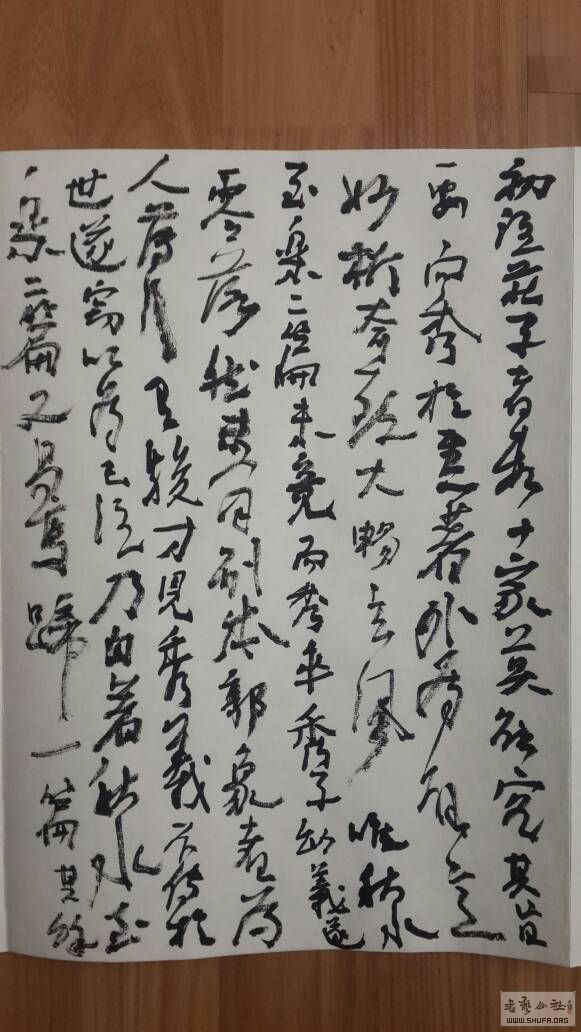 初注莊子者數十家莫能究其旨
要向秀於舊著外為解義
妙析奇致大暢玄風唯秋水
至樂二篇未竟而秀卒秀子幼義遂
零落然猶有別本郭象者為
人薄行有駿才見秀義不傳於
世遂竊以為己注乃自著秋水至
樂二篇又易馬蹄一篇其餘
书艺公社
WWW.SHUFA.ORG